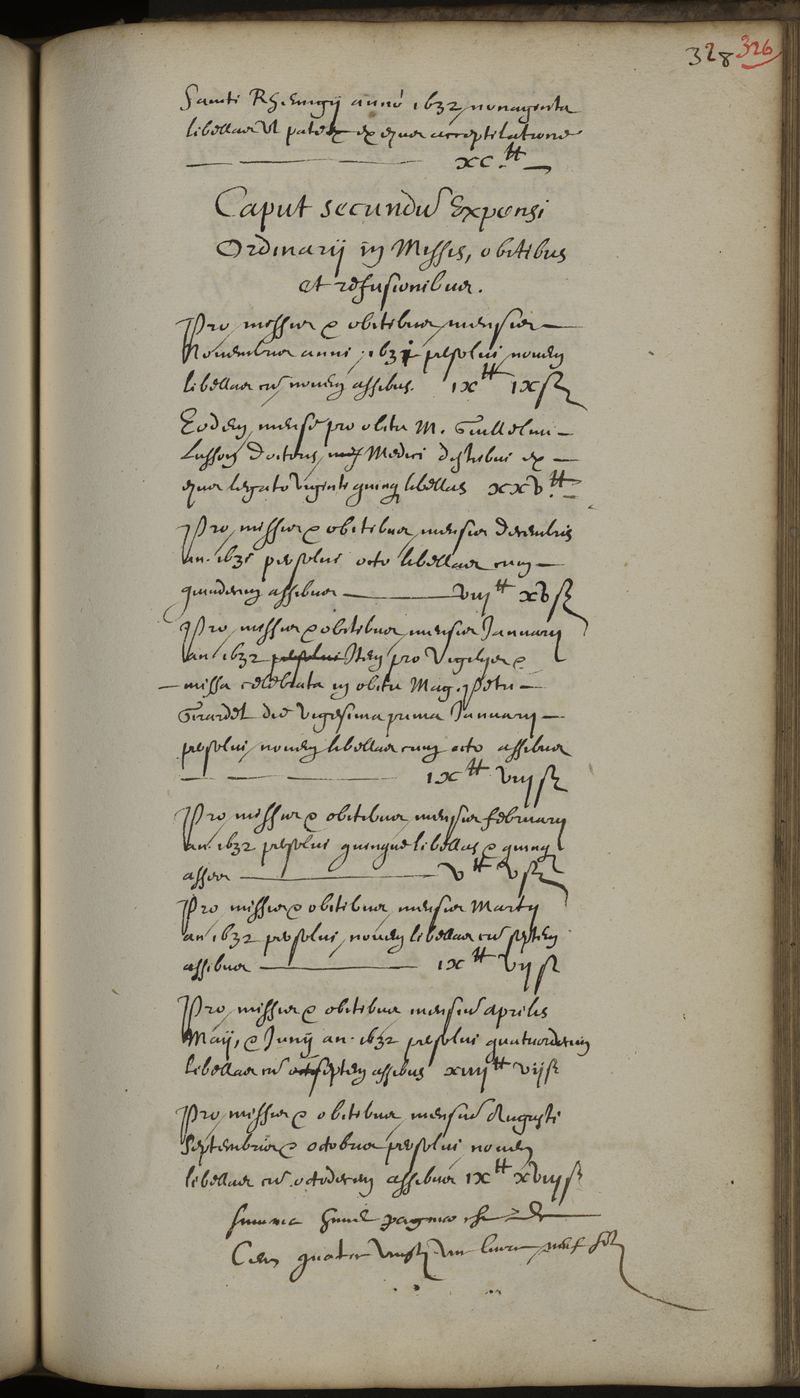 328 326
Sancti Rhemigij anno 1632 nonaginta
libellas ut patet ex ejus acceptilatione
xc.tt
Caput secundu Expensi
Ordinarij in Missis, obitibus
et refusionibus.
Pro missis & obitibus mensis
Novembris anni 1631 persolui novem
libellas cu novem assibus. ix tt ix s
Eodem mense pro obitu M. Guillelmi
Doctoris Medici distribui ex
ejus legato viginti quinq libellas xxv tt
Pro missis & obitibus mensis decembris
an. 1631 persolui octo libellas cum
quindecim assibus viij tt xv s
Pro missis & obitibus mensis Januarij
an. 1632 persolui Item pro Vigilijs &
missa celebrata in obitu Mag. Petri
Girardet die vigesima prima Januarij
persolui novem libellas cum octo assibus
ix tt viij s
Pro missis & obitibus mensis februarij
an. 1632 persolui quinque libellas & quinq
asses v tt v s
Pro missis & obitibus mensis Martij
an 1632 persolui novem libellas cu septem
assibus ix tt vij s
Pro missis & obitibus mensiu aprilis
Maij, & Junij an. 1632 persolui quatuordecim
libellas cu octo septem assibus xiiij tt vij s
Pro missis & obitibus mensiu Augusti
Septembris & octobris persolui novem
libellas cu octodecim assibus ix tt xviij s
Summa paginae
Cens quatre vingtz livres neuf solz